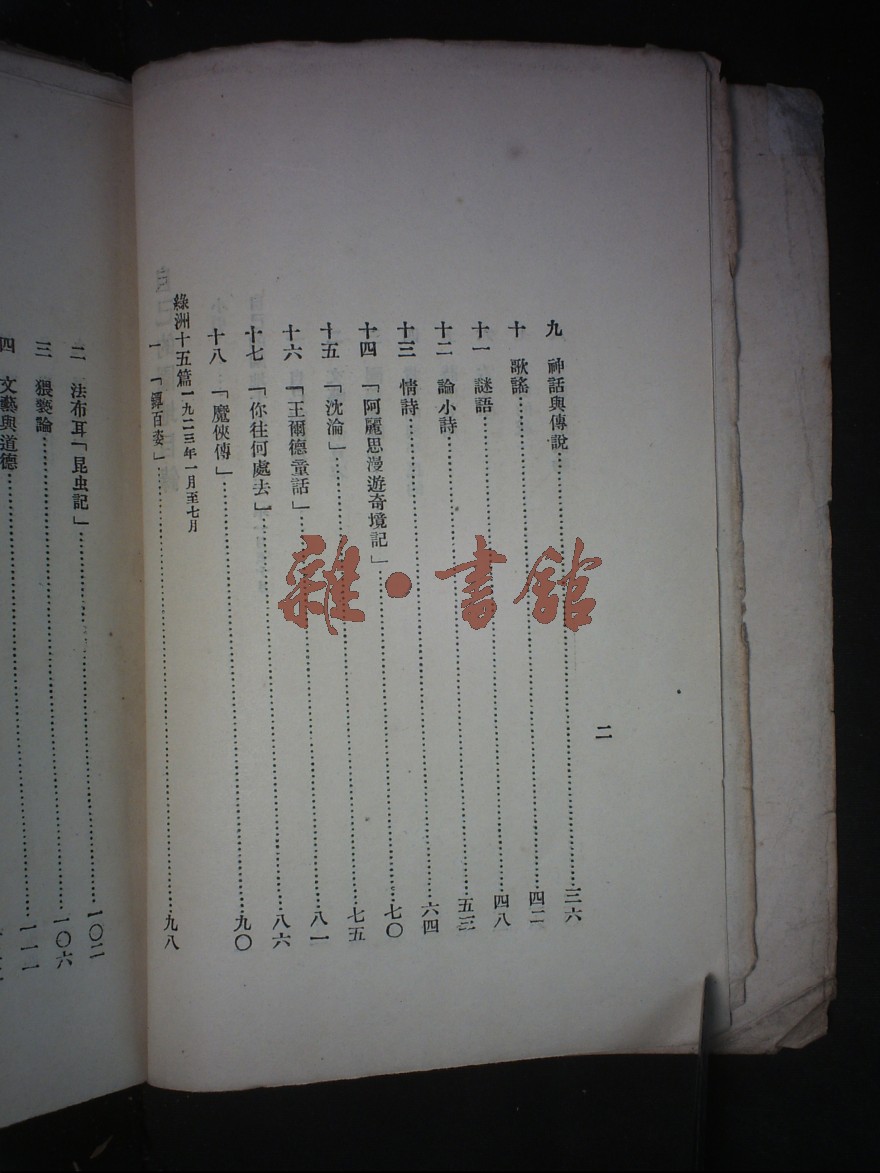 九　神話與傳說……三六
十　歌謠……四二
十一　謎語……四八
十二　論小詩……五三
十三　情詩……六四
十四　「阿麗思漫遊奇境記」……七〇
十五　「沈淪」……七五
十六　「王爾德童話」……八一
十七　「你往何處去」……八六
十八　「魔俠傳」……九〇
綠洲十五篇一九二三年一月至七月
一　「鐔百姿」……九八
二　法布耳「昆虫記」……一〇二
三　猥褻論……一〇六
四　文藝與道德……一一一
二
雜·書館